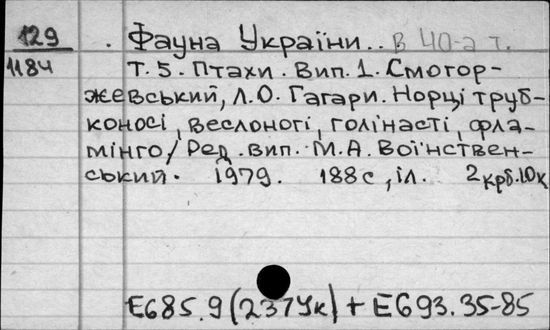 129 . Фауна України.. в 40-а т.
1184 Т. 5. Птахи. Вип. 1. Смогор-
жевський, Л.О. Гагари. Норці труб-
коносі, веслоногі, голінасті, фла-
мінго / Ред. вип. М.А. Воїнствен-
ський. 1979. 188 с, іл. 2 крб. 10 к
Е685.9 (237Ук) + Е693.35-85